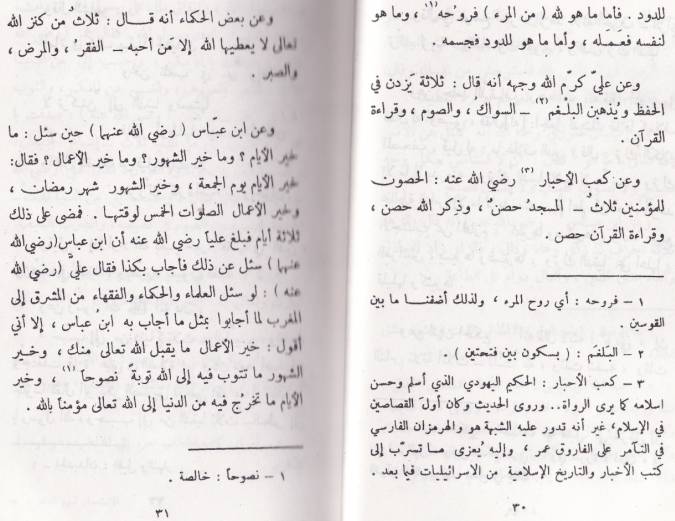 للدود . فأما ما هو لله ( من المرء ) فروحه (١) ، وما هو
لنفسه فعَمَله ، وأما ما هو للدود فجسمه .
وعن عليّ كرّم الله وجهه أنه قال : ثلاثة يَزدن في
الحفظ ويُذهبن البلْغم (٢) ــ السواكُ ، والصوم ، وقراءة
القرآن .
وعن كعب الأحبار (٣) رضيَ الله عنه : الحصون
للمؤمنين ثلاثٌ ــ المسجدُ حصنٌ ، وذِكر الله حصن ،
وقراءة القرآن حصن .
١ ــ فروحه : أي روح المرء ، ولذلك أضفنا ما بين
القوسين .
٢ ــ البلغم : ( بسكون بين فتحتين ) .
٣ ــ كعب الأحبار : الحكيم اليهودي الذي أسلم وحسن
اسلامه كما يرى الرواة .. وروى الحديث وكان أولَ القصاصين
في الإسلام ، غير أنه تدور عليه الشبهة هو والهرمزان الفارسي
في التآمر على الفاروق عمر ، وإليه يُعزى ما تسرّب إلى
كتب الأخبار والتاريخ الإسلامية من الاسرائيليات فيما بعد .
٣٠
وعن بعض الحكماء أنه قال : ثلاث من كنز الله
تعالى لا يعطيها الله إلا مَن أحبه ــ الفقرُ ، والمرض ،
والصبر .
وعن ابن عبّاس ( رضي الله عنهما ) حين سئل : ما
خير الأيام ؟ وما خير الشهور ؟ وما خير الأعمال ؟ فقال :
خير الأيام يوم الجمعة ، وخير الشهور شهر رمضان ،
وخير الأعمال الصلوات الخمس لوقتها . فمضى على ذلك
ثلاثة أيام فبلغ علياً رضي الله عنه أن ابن عباس (رضي الله
عنهما ) سئل عن ذلك فأجاب بكذا فقال عليّ ( رضي الله
عنه ) : لو سئل العلماء والحكماء والفقهاء من المشرق إلى
المغرب لما أجابوا بمثل ما أجاب به ابن عباس ، إلا أني
أقول : خير الأعمال ما يقبل الله تعالى منك ، وخير
الشهور ما تتوب فيه إلى الله توبةً نصوحاً (١) ، وخير
الأيام ما تخرُج فيه من الدنيا إلى الله تعالى مؤمناً بالله .
١ ــ نصوحاً : خالصة .
٣١